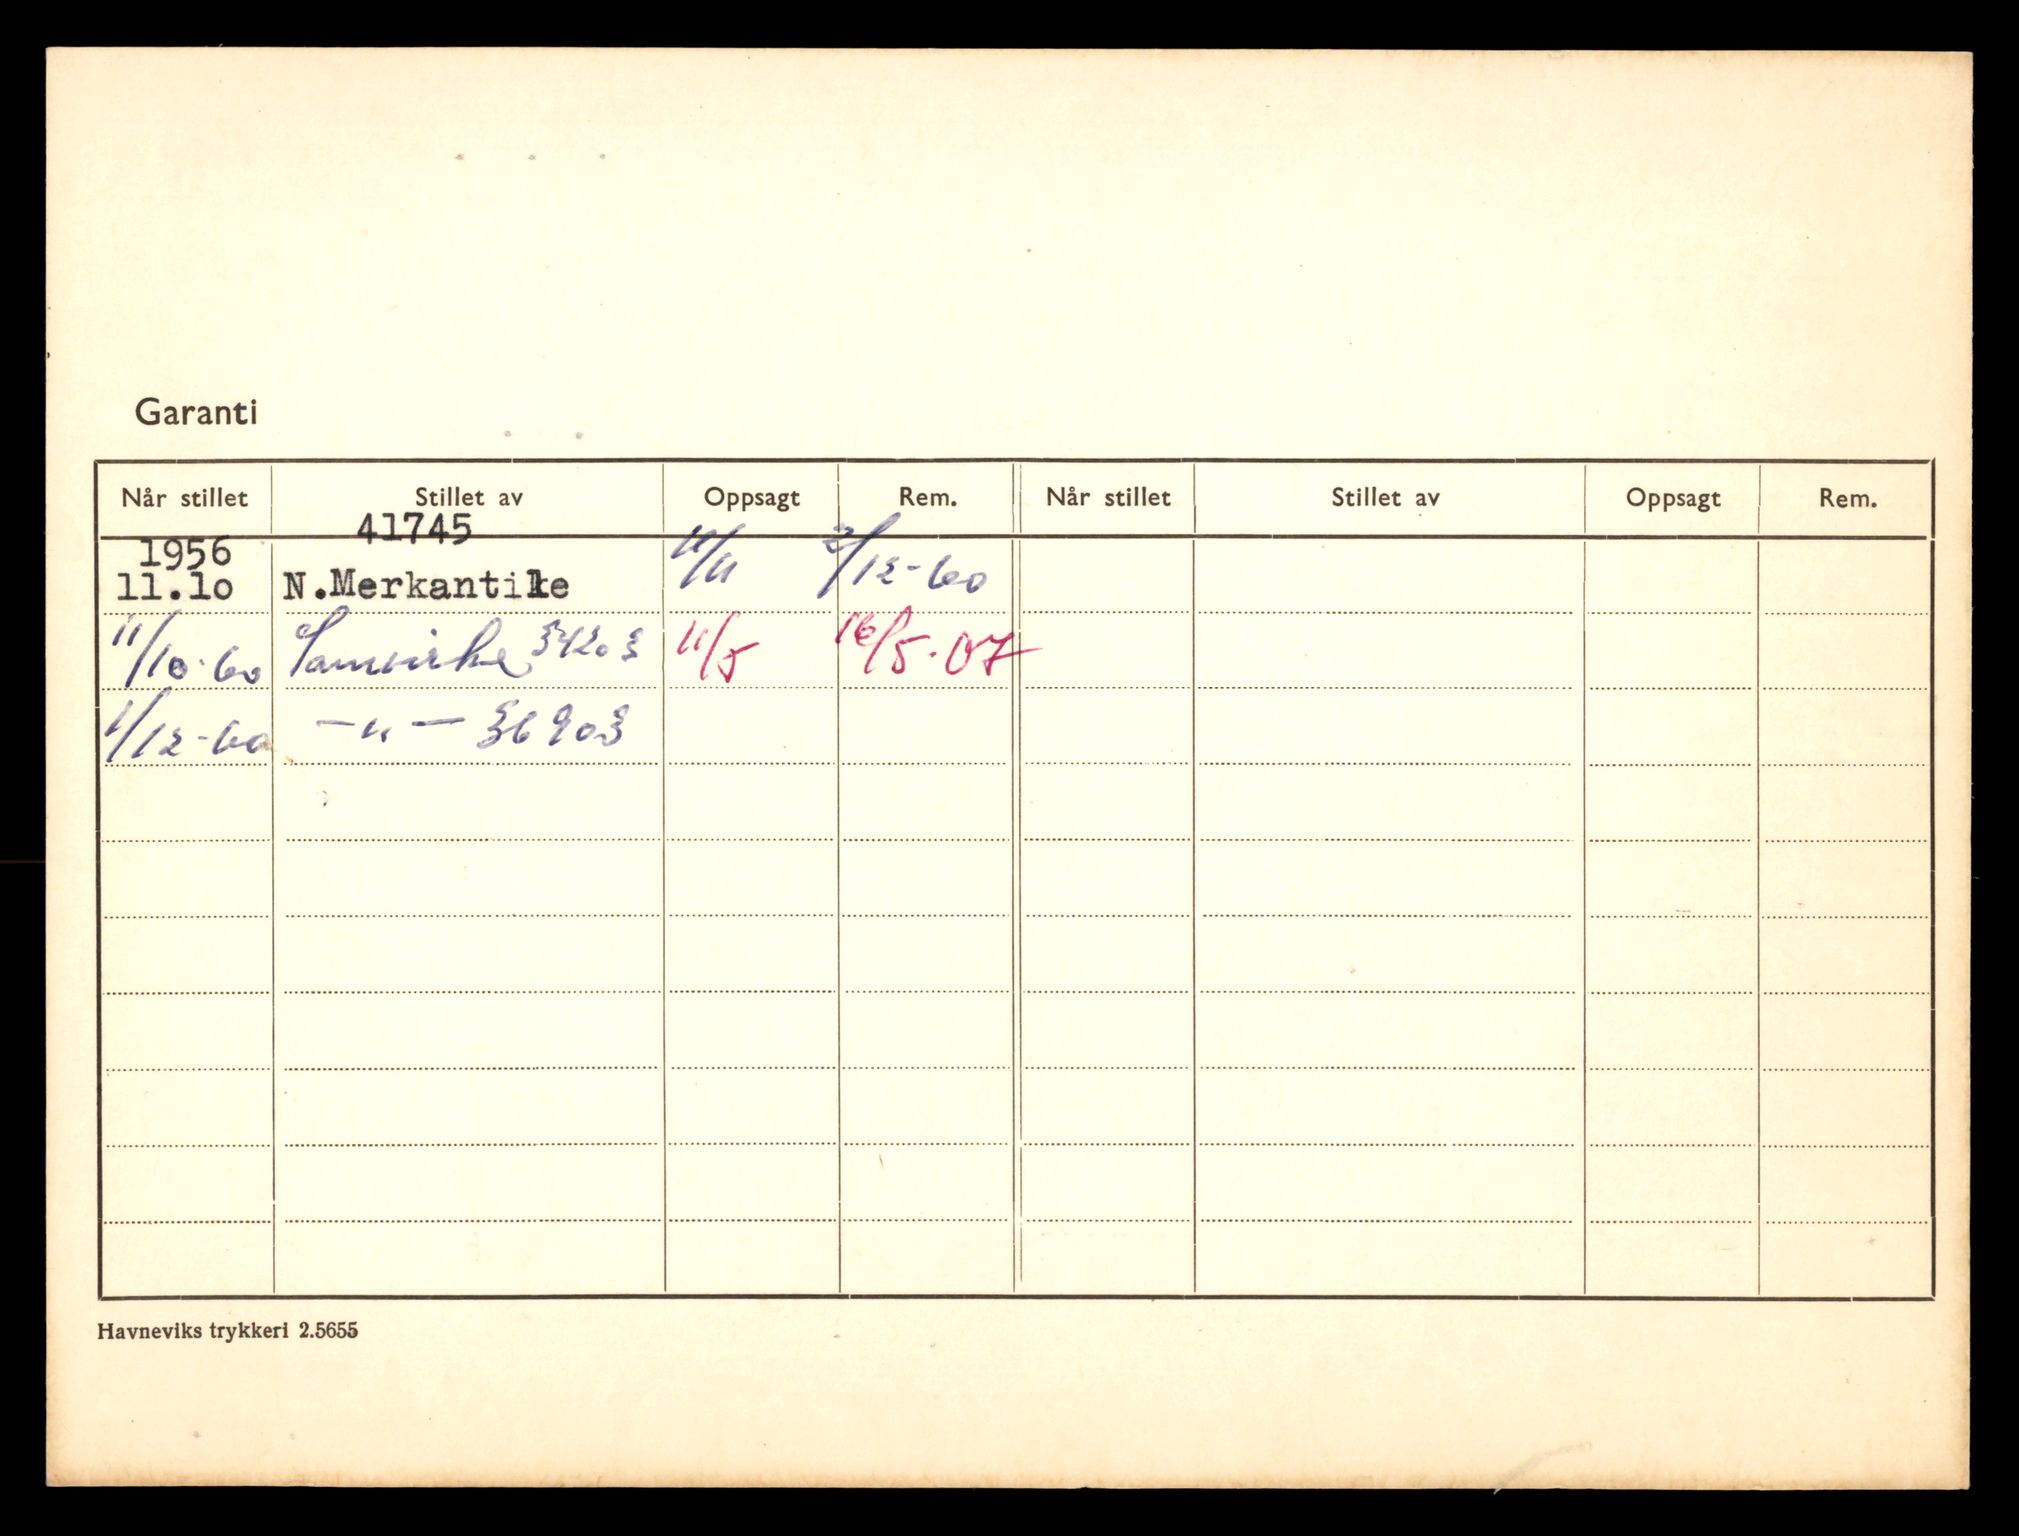 Garanti
Når stillet Stillet av Oppsagt Rem. Når stillet Stillet av Oppsagt Rem.
41745
1956
11.10 N.Merkantile 11/11 2/12-60
11/10-60 Samvirke 11/5
1/12-60 —"—
Havneviks trykkeri 2.5655